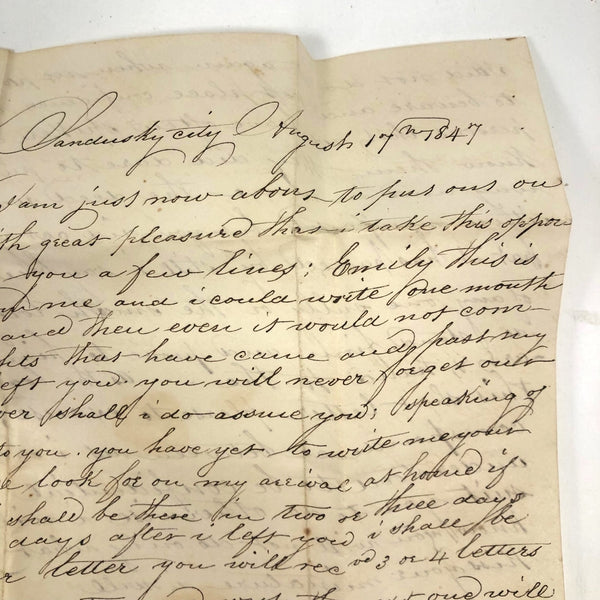 Sandusky city August 17th 1847
I am just now about to put out on
th great pleasured that i take this oppor
you a few lines; Emily this is
me and i could write one mouth
and then even it would not com-
hts that have came and past my
eft you. you will never forget our
ver shall i do assure you; speaking of
to you. you have yet to write me your
e look for on my arival at home if
shall be there in two or three days
days after i left you i shall be
r letter you will recvd 3 or 4 letters